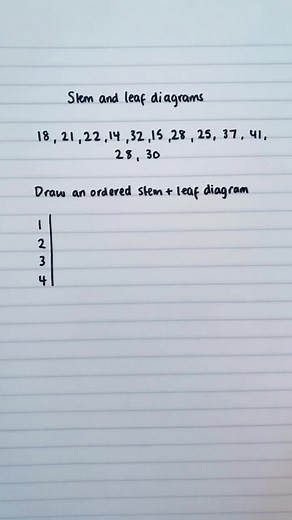 Stem and leaf diagrams
18, 21, 22, 14, 32, 15, 28, 25, 37, 41,
28, 30
Draw an ordered stem + leaf diagram
1
2
3
4